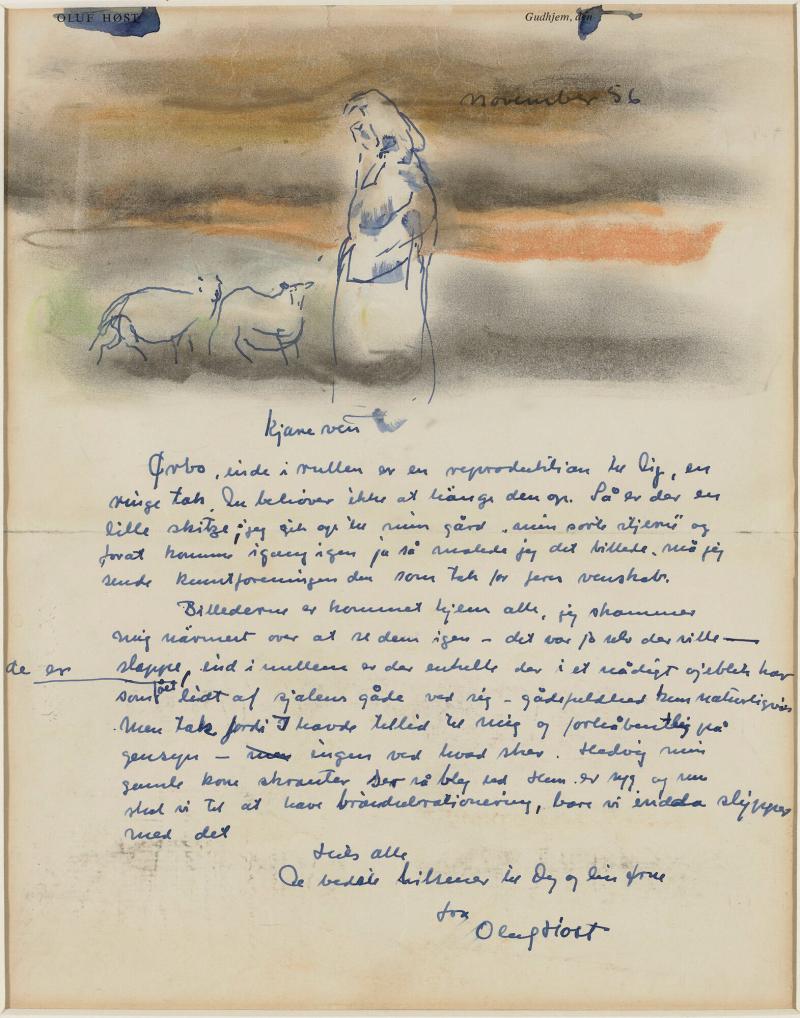 OLUF HØST
Gudhjem, den
November 56
kjære ven
Ørbo, inde i rullen er en reproduktion til dig, en
ringe tak. Du behøver ikke at hænge den op. Så er der en
lille skitze; jeg gik op til min gård "min sorte stjerne" og
forat komme igang igen ja så malede jeg det billede. må jeg
sende kunstforeningen den som tak for jeres venskab.
Billederne er kommet hjem alle, jeg skammer
mig nærmest over at se dem igen – det var jo selv der ville –
de er slappe, ind i mellem er der enkelte der i et nådigt øjeblik har
som fået lidt af sjælens gåde ved sig – gådefuldhed kun naturligvis
Men tak fordi I havde tillid til mig og forhåbentlig på
gensyn – men ingen ved hvad sker. Hedvig min
gamle kone skranter så bleg ud Hun er syg og nu
skal vi til at have brændselsrationering, bare vi endda slipper
med det
Hils alle
De bedste hilsener til Dig og din frue
fra
Oluf Høst